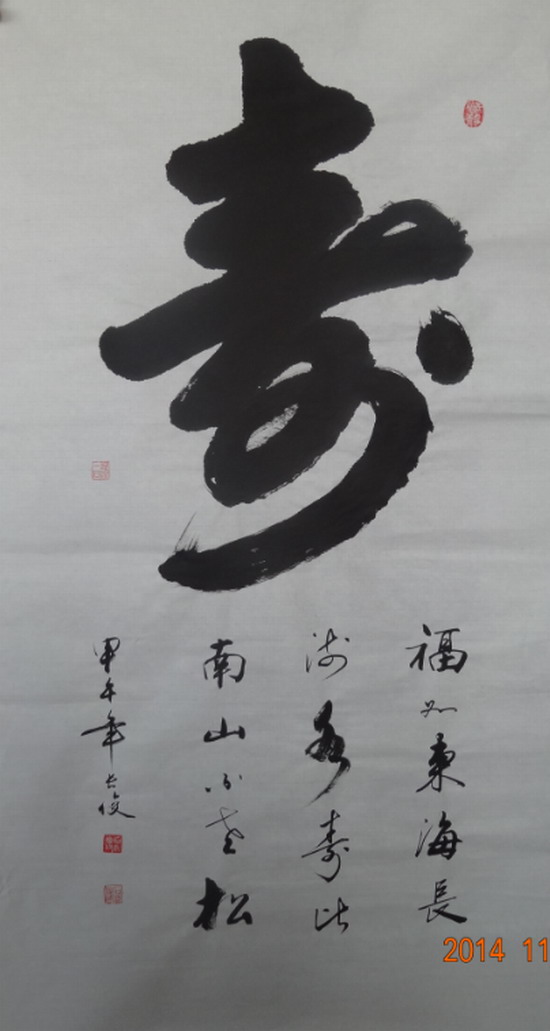 寿
福如東海長
流水寿比
南山不老松
甲午年俊
2014 11